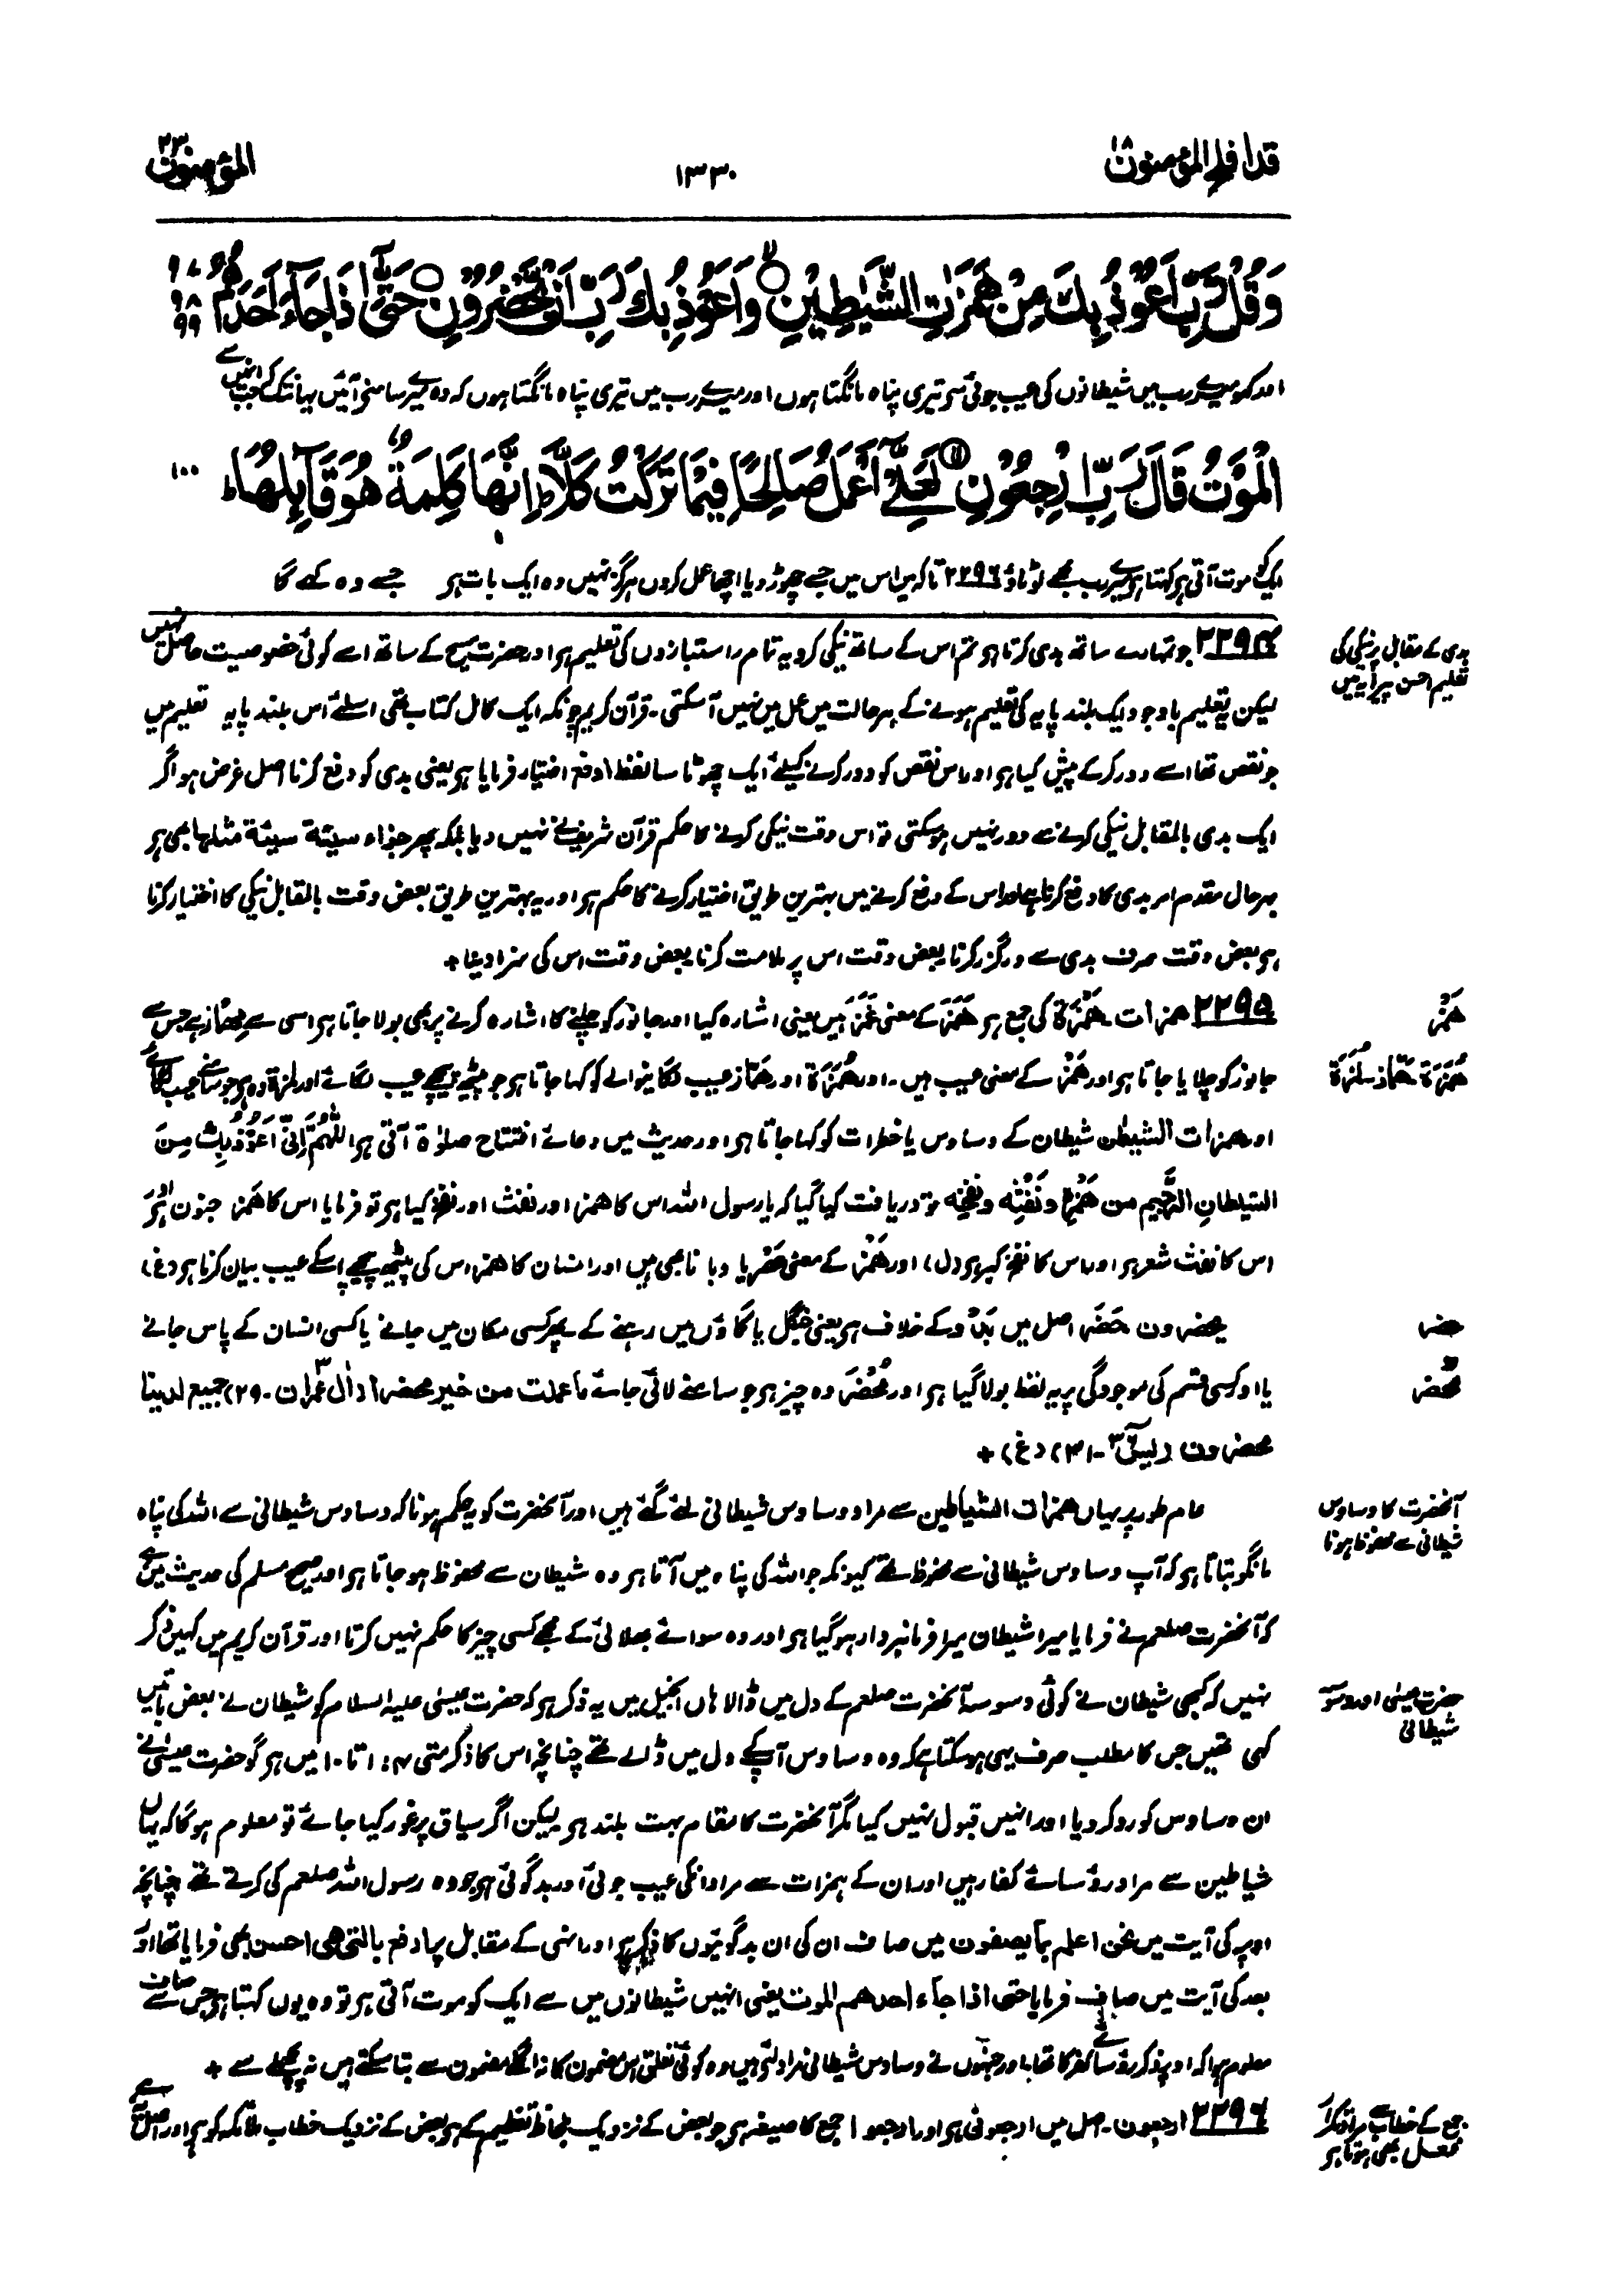 قد افلح المؤمنون ۱۸
۱۳۳۰
المؤمنون ۲۳
وَقُلْ رَّبِّ اَعُوْذُ بِكَ مِنْ هَمَزٰتِ الشَّيٰطِيْنِ ۙ وَاَعُوْذُ بِكَ رَبِّ اَنْ يَّحْضُرُوْنِ ○ حَتّٰٓى اِذَا جَآءَ اَحَدَهُمُ
۹۷
۹۸
۹۹
اور کہو میرے رب میں شیطانوں کی عیب جوئی سے تیری پناہ مانگتا ہوں اور میرے رب میں تیری پناہ مانگتا ہوں کہ وہ میرے سامنے آئیں یہانتک کہ جب انہیں سے
الْمَوْتُ قَالَ رَبِّ ارْجِعُوْنِ ۙ لَعَلِّيْٓ اَعْمَلُ صَالِحًا فِيْمَا تَرَكْتُ كَلَّا ؕ اِنَّهَا كَلِمَةٌ هُوَ قَآئِلُهَا ؕ
۱۰۰
ایک کو موت آتی ہو کہتا ہو میرے رب مجھے لوٹاؤ ۲۲۹۶ تاکہ میں اس میں جسے چھوڑ دیا اچھا عمل کروں ہرگز نہیں وہ ایک بات ہو جسے وہ کہے گا
بدی کے مقابل پر نیکی کی
تعلیم احسن پیرایہ میں
۲۲۹۴ جو تمہارے ساتھ بدی کرتا ہو تم اس کے ساتھ نیکی کرو یہ تمام راستبازوں کی تعلیم ہو اور حضرت مسیح کے ساتھ اسے کوئی خصوصیت حاصل نہیں
لیکن یہ تعلیم باوجود ایک بلند پایہ کی تعلیم ہونے کے ہر حالت میں عمل میں نہیں آسکتی۔ قرآن کریم چونکہ ایک کامل کتاب تھی اسلئے اس بلند پایہ تعلیم میں
جو نقص تھا اسے دور کرکے پیش کیا ہو اور اس نقص کو دور کرنے کیلئے ایک چھوٹا سا لفظ ادفع اختیار فرمایا ہو یعنی بدی کو دفع کرنا اصل غرض ہو اگر
ایک بدی بالمقابل نیکی کرنے سے دور نہیں ہوسکتی تو اس وقت نیکی کرنے کا حکم قرآن شریف نے نہیں دیا بلکہ پھر جزاء سیئة سیئة مثلها بھی ہو
بہرحال مقدم امر بدی کا دفع کرنا ہے اور اس کے دفع کرنے میں بہترین طریق اختیار کرنے کا حکم ہو اور یہ بہترین طریق بعض وقت بالمقابل نیکی کا اختیار کرنا
ہو بعض وقت صرف بدی سے درگزر کرنا بعض وقت اس پر ملامت کرنا بعض وقت اس کی سزا دینا +
هَمْز
۲۲۹۵ همزات۔ هَمْزَة کی جمع ہو هَمَزَ کے معنی غَمَزَ ہیں یعنی اشارہ کیا اور جانور کو چلنے کا اشارہ کرنے پر بھی بولا جاتا ہو اسی سے مِهْمَاز ہے جس سے
هُمَزَة هَمَّاز لُمَزَة
جانور کو چلایا جاتا ہو اور هَمْز کے معنی عیب ہیں۔ اور هُمَزَة اور هَمَّاز عیب لگانیوالے کو کہا جاتا ہو جو پیٹھ پیچھے عیب لگائے اور لمزة وہ ہو جو سامنے عیب لگائے
اور همزات الشیطن شیطان کے وساوس یا خطرات کو کہا جاتا ہو اور حدیث میں دعائے افتتاح صلوٰۃ آتی ہو اللّٰهُمَّ اِنِّيْ اَعُوْذُ بِكَ مِنَ
الشیطانِ الرَّجِیْم من هَمْزِہ ونَفْثِہ ونَفْخِہ تو دریافت کیا گیا کہ یا رسول اللہ اس کا همز اور نفث اور نفخ کیا ہو تو فرمایا اس کا هَمز جنون ہو اور
اس کا نفث شعر ہو اور اس کا نفخ کبر ہو (ل) اور هَمْز کے معنی عَصْر یا دبانا بھی ہیں اور انسان کا همز اس کی پیٹھ پیچھے اسکے عیب بیان کرنا ہو (غ)
حضر
یحضرون حَضَر اصل میں بَدْو کے خلاف ہو یعنی جنگل یا گاؤں میں رہنے کے پھر کسی مکان میں جانے یا کسی انسان کے پاس جانے
مُحْضَر
یا اور کسی قسم کی موجودگی پر یہ لفظ بولا گیا ہو اور مُحْضَر وہ چیز ہو جو سامنے لائی جائے ما عملت من خیر محضرا (اٰل عمران ۳۔ ۲۹) جمیع لدینا
محضرون (یٰسٓ ۔ ۳۲) (غ) +
آنحضرت کا وساوس
شیطانی سے محفوظ ہونا
عام طور پر یہاں همزات الشیاطین سے مراد وساوس شیطانی لئے گئے ہیں اور آنحضرت کو یہ حکم ہونا کہ وساوس شیطانی سے اللہ کی پناہ
مانگو بتاتا ہو کہ آپ وساوس شیطانی سے محفوظ تھے کیونکہ جو اللہ کی پناہ میں آتا ہو وہ شیطان سے محفوظ ہو جاتا ہو اور صحیح مسلم کی حدیث میں ہے
کہ آنحضرت صلعم نے فرمایا میرا شیطان میرا فرمانبردار ہوگیا ہو اور وہ سوائے بھلائی کے مجھے کسی چیز کا حکم نہیں کرتا اور قرآن کریم میں کہیں ذکر
حضرت عیسٰی اور وسوسہ
شیطانی
نہیں کہ کبھی شیطان نے کوئی وسوسہ آنحضرت صلعم کے دل میں ڈالا ہاں انجیل میں یہ ذکر ہو کہ حضرت عیسٰی علیہ السلام کو شیطان نے بعض باتیں
کہی تھیں جس کا مطلب صرف یہی ہوسکتا ہے کہ وہ وساوس آپکے دل میں ڈالے تھے چنانچہ اس کا ذکر متی ۴: ۱ تا ۱۰ میں ہو گو حضرت عیسٰی نے
ان وساوس کو رد کر دیا اور انہیں قبول نہیں کیا مگر آنحضرت کا مقام بہت بلند ہو لیکن اگر سیاق پر غور کیا جائے تو معلوم ہوگا کہ یہاں
شیاطین سے مراد رؤسائے کفار ہیں اور ان کے ہمزات سے مراد انکی عیب جوئی اور بدگوئی ہو جو وہ رسول اللہ صلعم کی کرتے تھے چنانچہ
اوپر کی آیت میں نحن اعلم بما یصفون میں صاف ان کی ان بدگوئیوں کا ذکر ہے اور انہی کے مقابل پر ادفع بالتی هی احسن بھی فرمایا تھا اور
بعد کی آیت میں صاف فرمایا حتی اذا جآء احدهم الموت یعنی انہیں شیطانوں میں سے ایک کو موت آتی ہو تو وہ یوں کہتا ہو جس سے صاف
معلوم ہوا کہ اوپر ذکر رؤسائے کفر کا تھا اور جنہوں نے وساوس شیطانی مراد لئے ہیں وہ کوئی تعلق اس مضمون کا نہ اگلے مضمون سے بتا سکتے ہیں نہ پچھلے سے +
جمع کے خطاب سے مراد تکرار
فعل بھی ہوتا ہو
۲۲۹۶ ارجعون۔ اصل میں ارجعونی ہو اور ارجعوا جمع کا صیغہ ہو جو بعض کے نزدیک بلحاظ تعظیم کے ہو بعض کے نزدیک خطاب ملائکہ کو ہو اور اصل